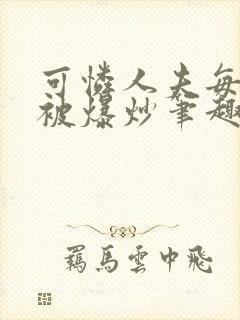 可憐人夫每
被爆炒筆趣
羈馬雲中飛